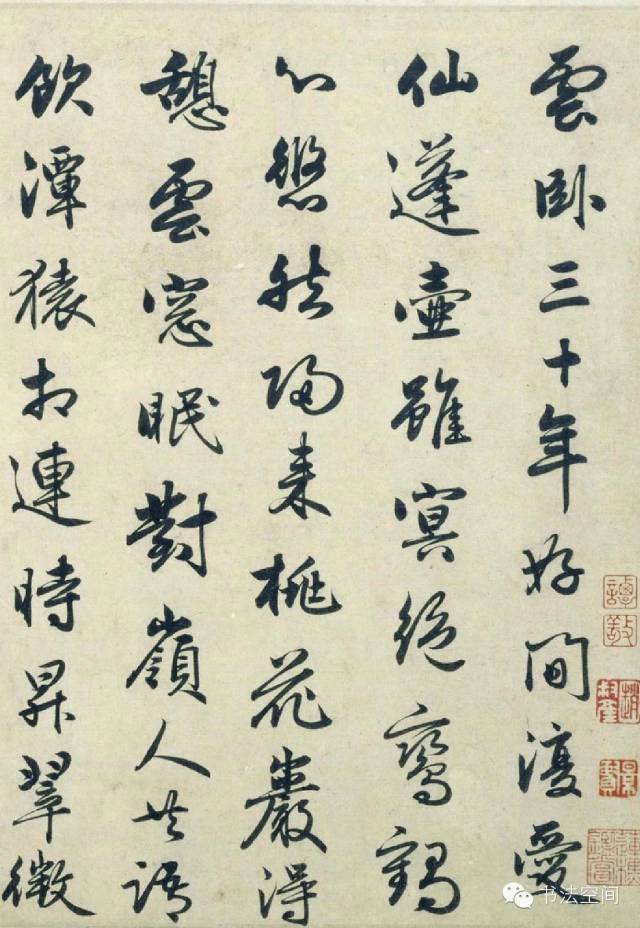 雲臥三十年好間復愛
仙蓬壺雖冥絕鸞鶴
心悠然歸来桃花巖得
憩雲窓眠對嶺人共語
飲潭猿相連時昇翠微
书法空间